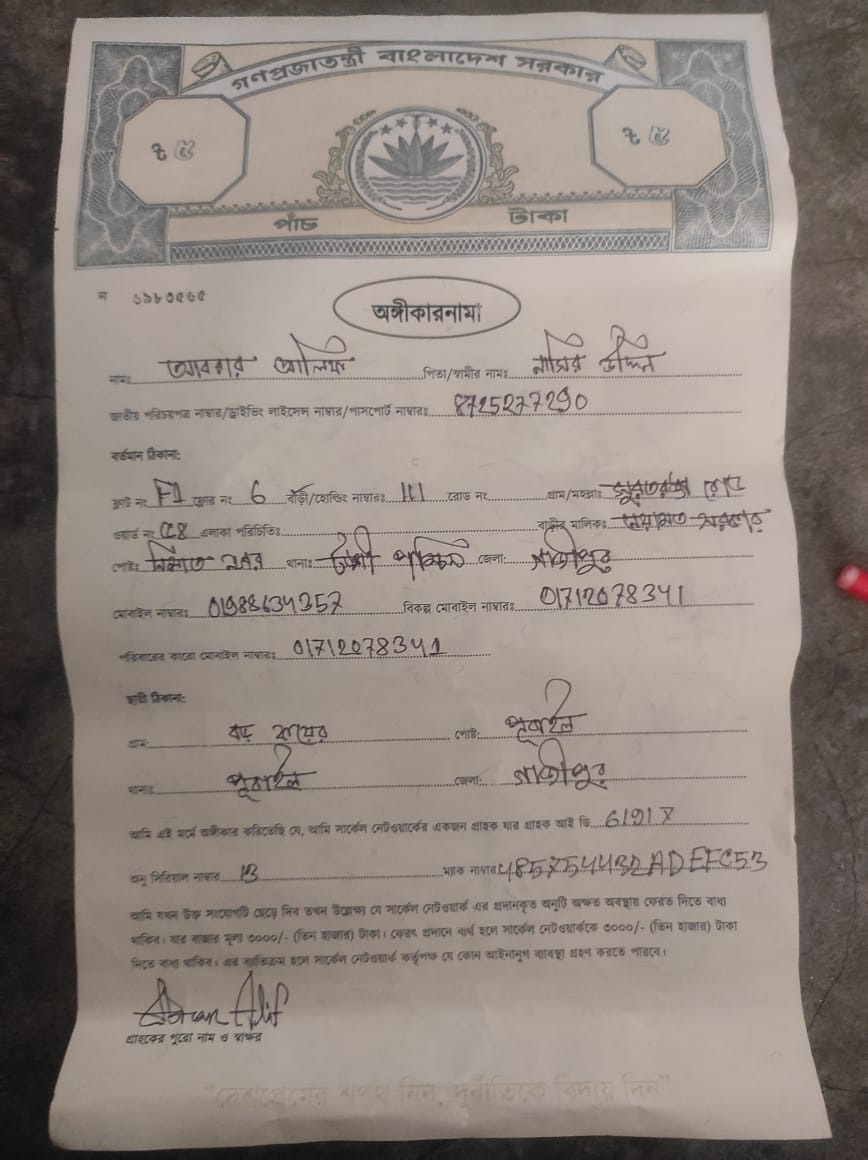 গণপ্রজাতন্ত্রী বাংলাদেশ সরকার
৳ ৫ ৳ ৫
পাঁচ টাকা
ন ৬৯৮৩৫৬৫
অঙ্গীকারনামা
নামঃ আবরার আলিফ পিতা/স্বামীর নামঃ নাসির উদ্দিন
জাতীয় পরিচয়পত্র নাম্বার/ড্রাইভিং লাইসেন্স নাম্বার/পাসপোর্ট নাম্বারঃ 8725277290
বর্তমান ঠিকানা:
ফ্লাট নং F1 ফ্লোর নং 6 বাড়ী/হোল্ডিং নাম্বারঃ 111 রোড নং গ্রাম/মহল্লাঃ রোড
ওয়ার্ড নং এলাকা পরিচিতিঃ বাড়ীর মালিকঃ সরকার
পোষ্টঃ নগর থানাঃ টঙ্গী পশ্চিম জেলা: গাজীপুর
মোবাইল নাম্বারঃ 01988634357 বিকল্প মোবাইল নাম্বারঃ 01712078341
পরিবারের কারো মোবাইল নাম্বারঃ 01712078341
স্থায়ী ঠিকানা:
গ্রাম: বড় কয়ের পোষ্ট: পূবাইল
থানাঃ পূবাইল জেলা: গাজীপুর
আমি এই মর্মে অঙ্গীকার করিতেছি যে, আমি সার্কেল নেটওয়ার্কের একজন গ্রাহক যার গ্রাহক আই ডি
অনু সিরিয়াল নাম্বার ম্যাক নাম্বার 485754432ADEFC53
আমি যখন উক্ত সংযোগটি ছেড়ে দিব তখন উল্লেক্ষ্য যে সার্কেল নেটওয়ার্ক এর প্রদানকৃত অনুটি অক্ষত অবস্থায় ফেরত দিতে বাধ্য
থাকিব। যার বাজার মূল্য ৩০০০/- (তিন হাজার) টাকা। ফেরৎ প্রদানে ব্যর্থ হলে সার্কেল নেটওয়ার্ককে ৩০০০/- (তিন হাজার) টাকা
দিতে বাধ্য থাকিব। এর ব্যতিক্রম হলে সার্কেল নেটওয়ার্ক কর্তৃপক্ষ যে কোন আইনানুগ ব্যবস্থা গ্রহণ করতে পারবে।
Alif
গ্রাহকের পুরো নাম ও স্বাক্ষর
"দেশপ্রেমের শপথ নিন, দুর্নীতিকে বিদায় দিন"